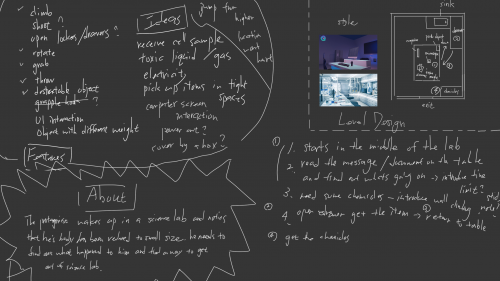 climb
shoot ?
open lockers/drawers?
rotate
grab
throw
destructable object
grapple hook ?
UI interaction
Object with different weight
Features
Ideas
receive cell sample
toxic liquid / gas
electricity
pick up items in tight spaces
computer screen interaction
power out?
cover by a box?
jump
higher
location
want
hurt
style
sink
exit
chemicals
Level Design
About
The protagonist wakes up in a science lab and notices
that he's body has been reduced to small size. he needs to
find out what happened to him and find a way to get
out of science lab.
①
1. starts in the middle of the lab
2. read the message/document on the table
and find out what's going on → introduce time limit?
3. need some chemicles → introduce wall climbing
②
4. get the item → return to table
③ get the chemicles